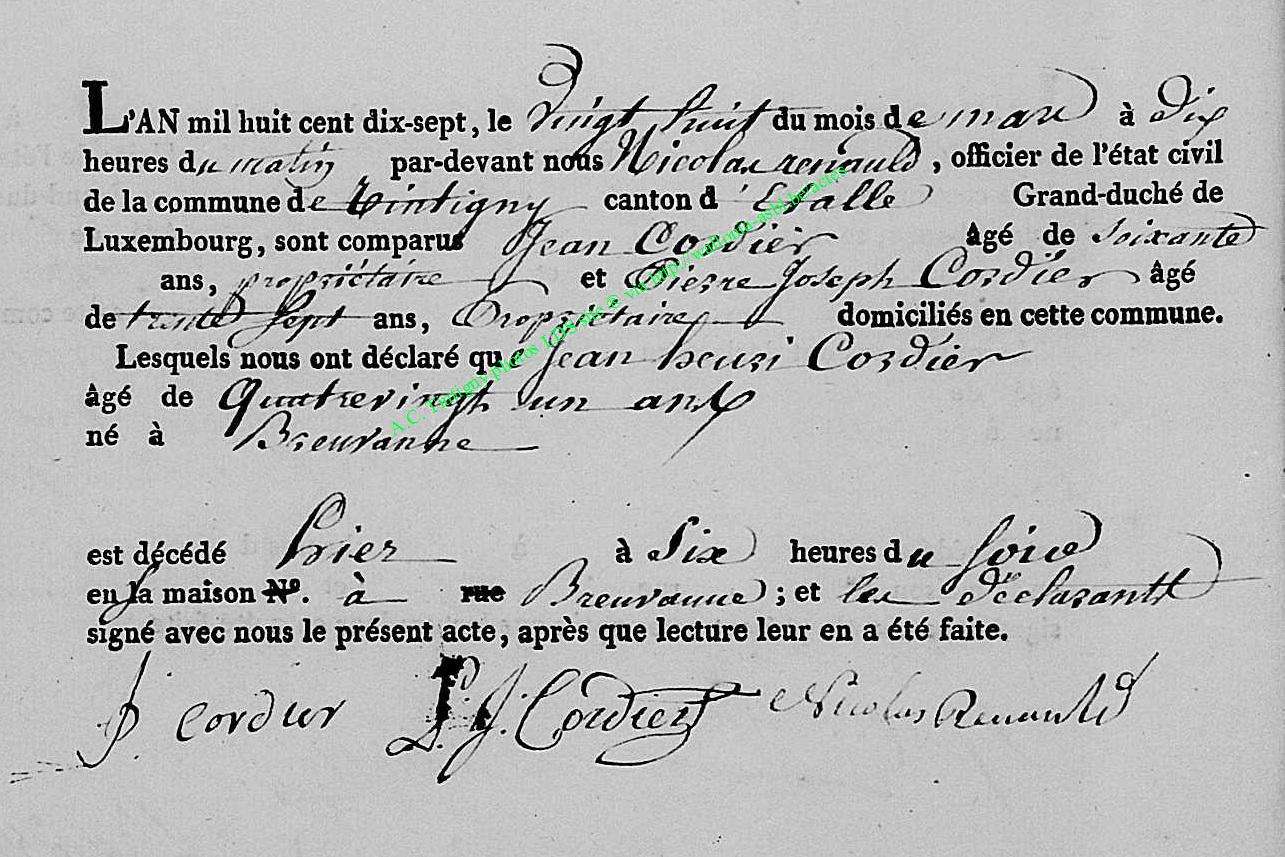 L'AN mil huit cent dix-sept, le vingt huit du mois de mars à dix
heures du matin par-devant nous Nicolas renauld, officier de l'état civil
de la commune de tintigny canton d'Etalle Grand-duché de
Luxembourg, sont comparus Jean Cordier âgé de soixante
ans, propriétaire et Pierre Joseph Cordier âgé
de trente sept ans, Propriétaire domiciliés en cette commune.
Lesquels nous ont déclaré que jean henri Cordier
âgé de quatrevingt un ans
né à Breuvanne
est décédé hier à six heures du soir
en sa maison No. à rue Breuvanne; et les déclarants
signé avec nous le présent acte, après que lecture leur en a été faite.
J. cordier P. J. Cordier Nicolas Renauld
A.C. Tintigny photos LDS site © via http://wallonia-asbl.be/actes